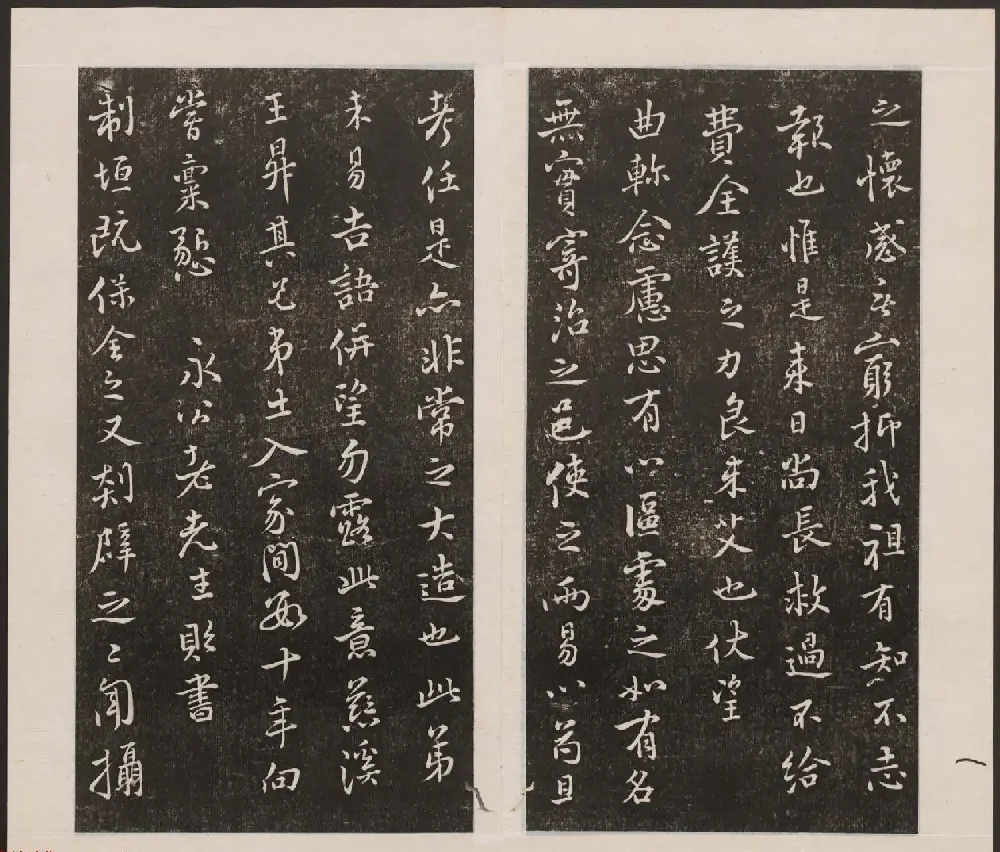 之懷感無窮抑我祖有知不忘
報也惟是來日尚長救過不給
費全護之力良未艾也伏望
曲軫念慮思有以區處之如有名
無實寄治之邑使之兩易以苟且
考任是亦非常之大造也此第
未易吉語併望勿露此意慈溪
王昇其兄弟士人家間數十年向
嘗稟愬 永公老先生賜書
制垣既保全之又剡辟之之聞攝